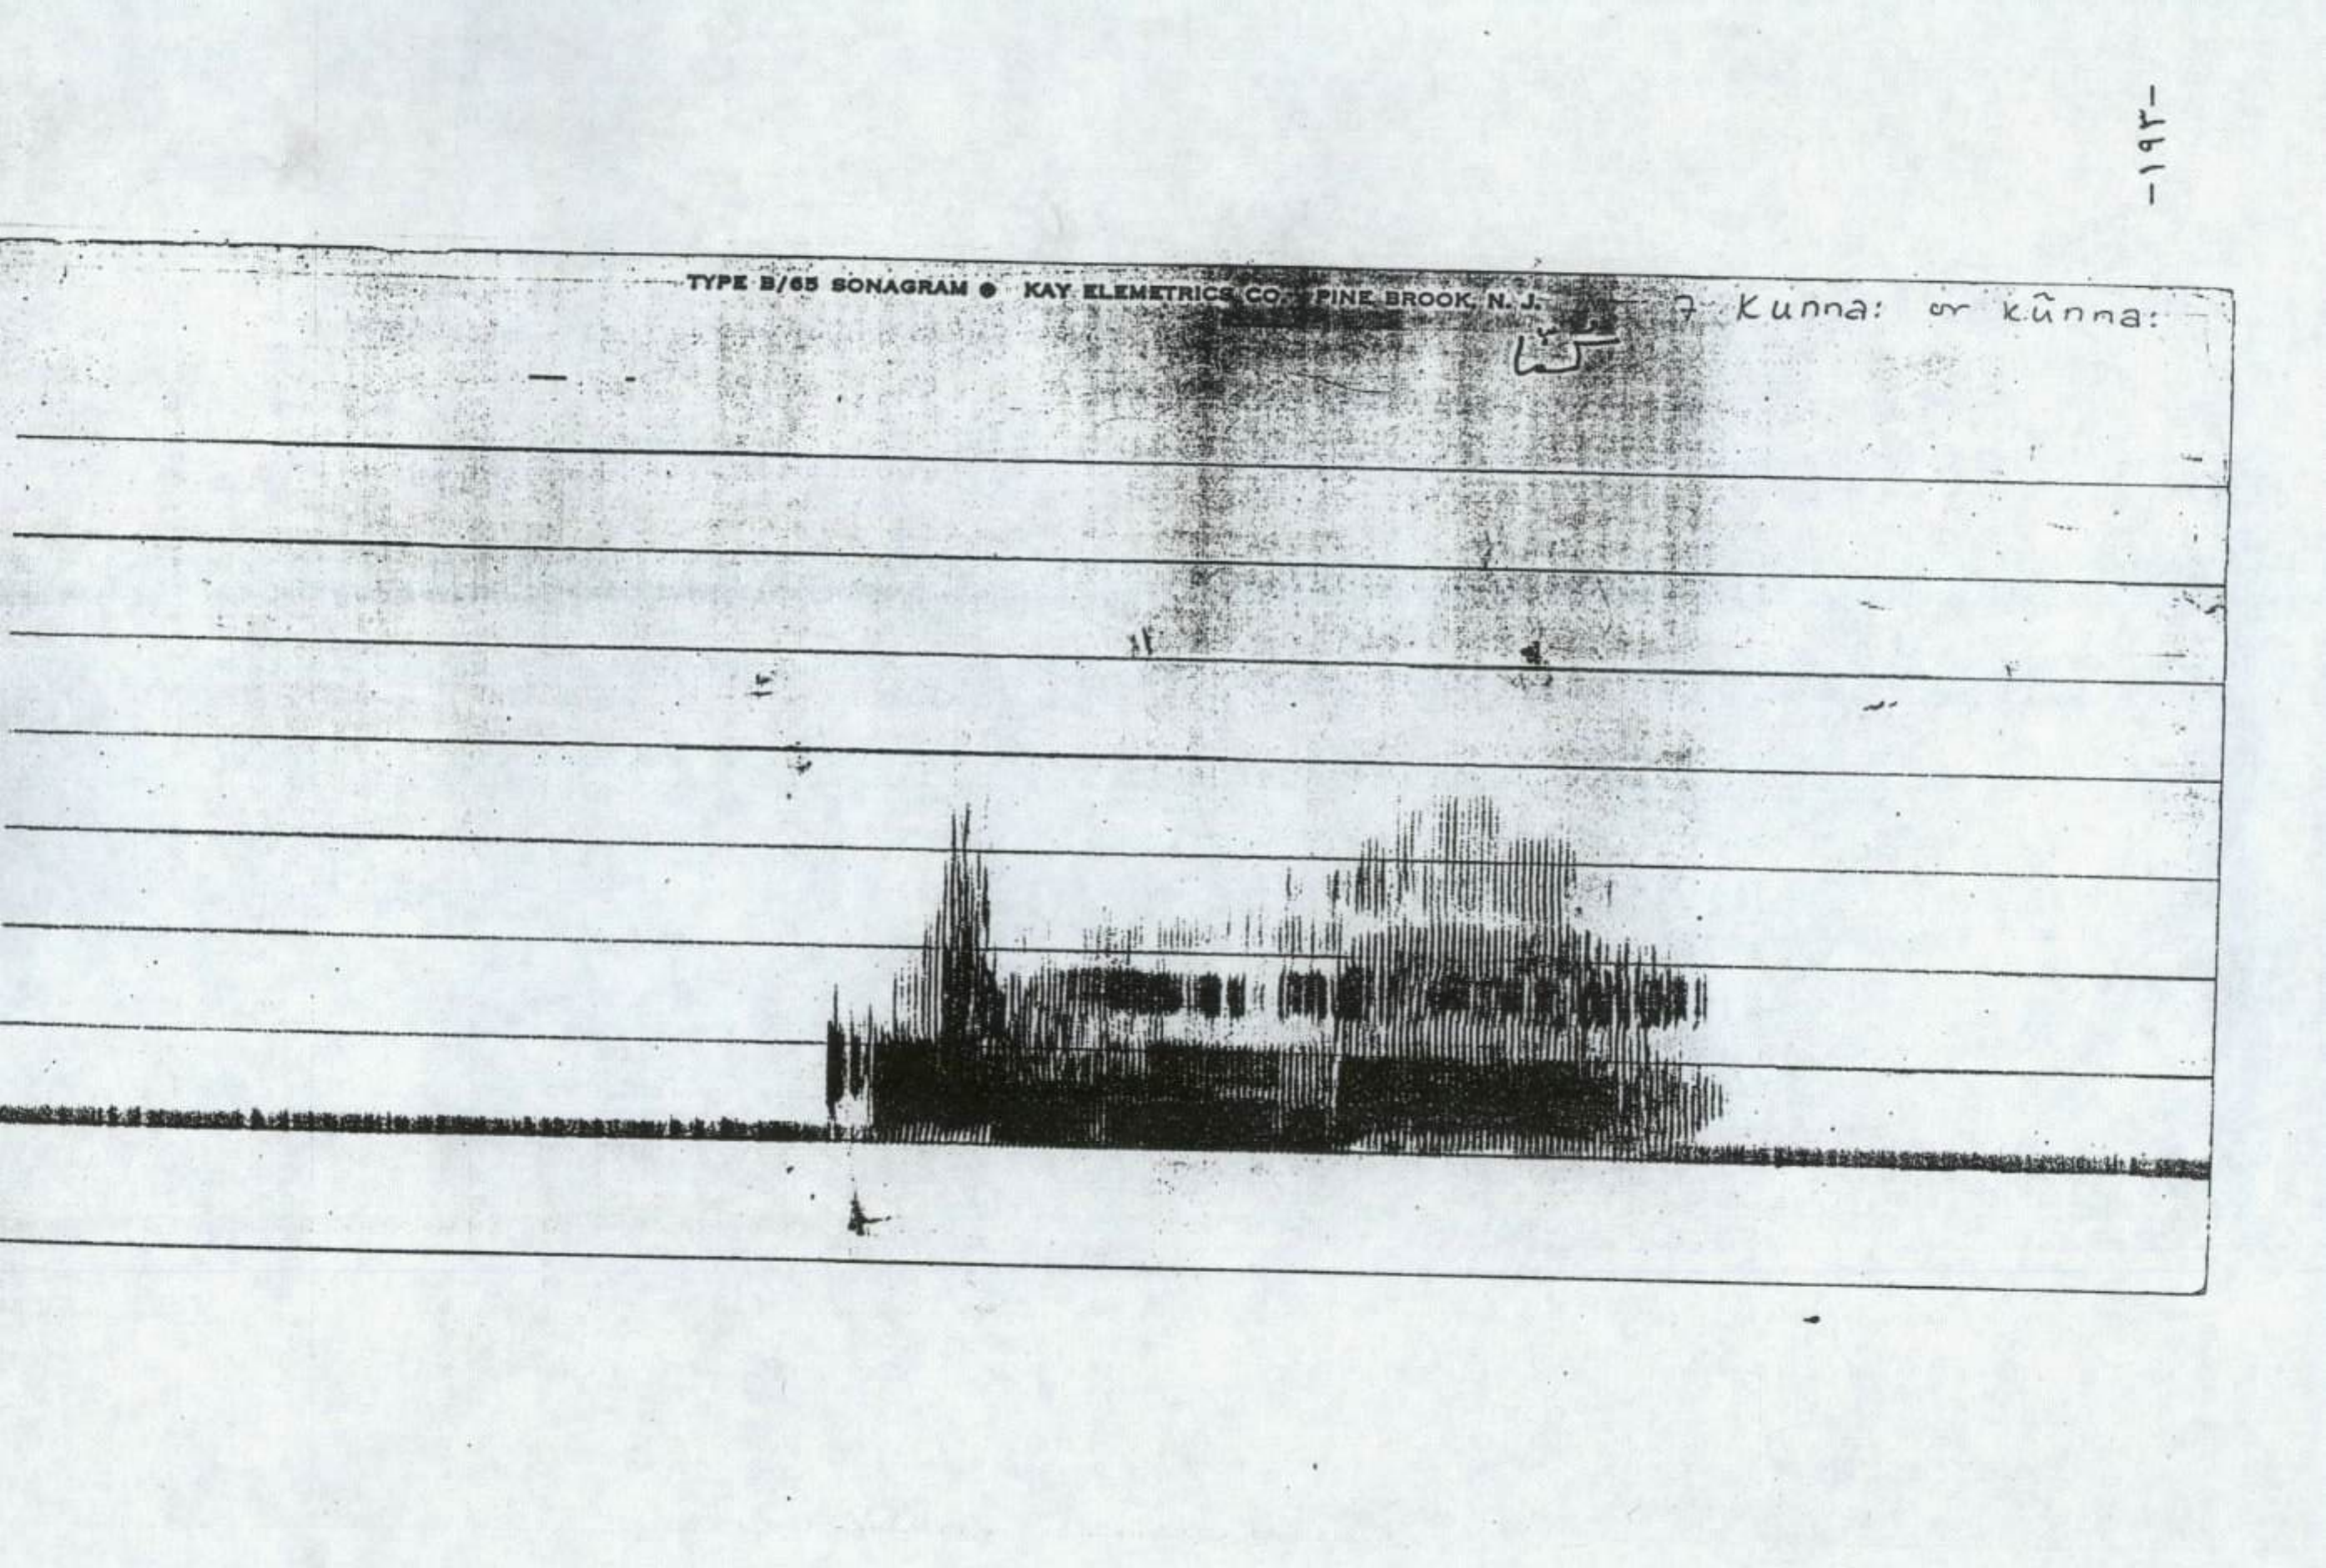 -١٩٣-
TYPE B/65 SONAGRAM ● KAY ELEMETRICS CO. PINE BROOK, N. J.
7 Kunna: or kũnna:
كنّا